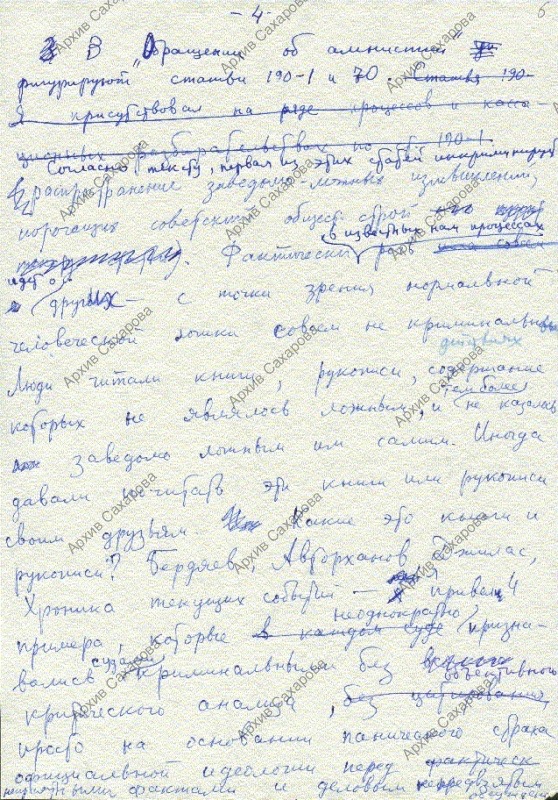 - 4 -
6
3 В „Обращении об амнистии"
фигурируют статьи 190-1 и 70. Статья 190-
Я присутствовал на ряде процессов и касса-
ционных разбирательствах по 190-1
Согласно тексту, первая из этих статей инкриминирует
распространение заведомо-ложных измышлений,
порочащих советский общес. строй
в известных нам процессах
Фактически речь совсем
идет о
других – с точки зрения нормальной
человеческой логики совсем не криминальных
действиях
Люди читали книги, рукописи, содержание
тем более
которых не являлось ложным, и не казалось
заведомо ложным им самим. Иногда
давали почитать эти книги или рукописи
своим друзьям Какие это книги и
рукописи? Бердяев, Авторханов, Джилас,
Хроника текущих событий – привел 4
неоднократно
примера, которые в каждом суде призна-
судами
вались криминальными без
объективного
юридического анализа, без цитирования
просто на основании панического страха
официальной идеологии перед фактическ
фактами и деловым непредвзятым